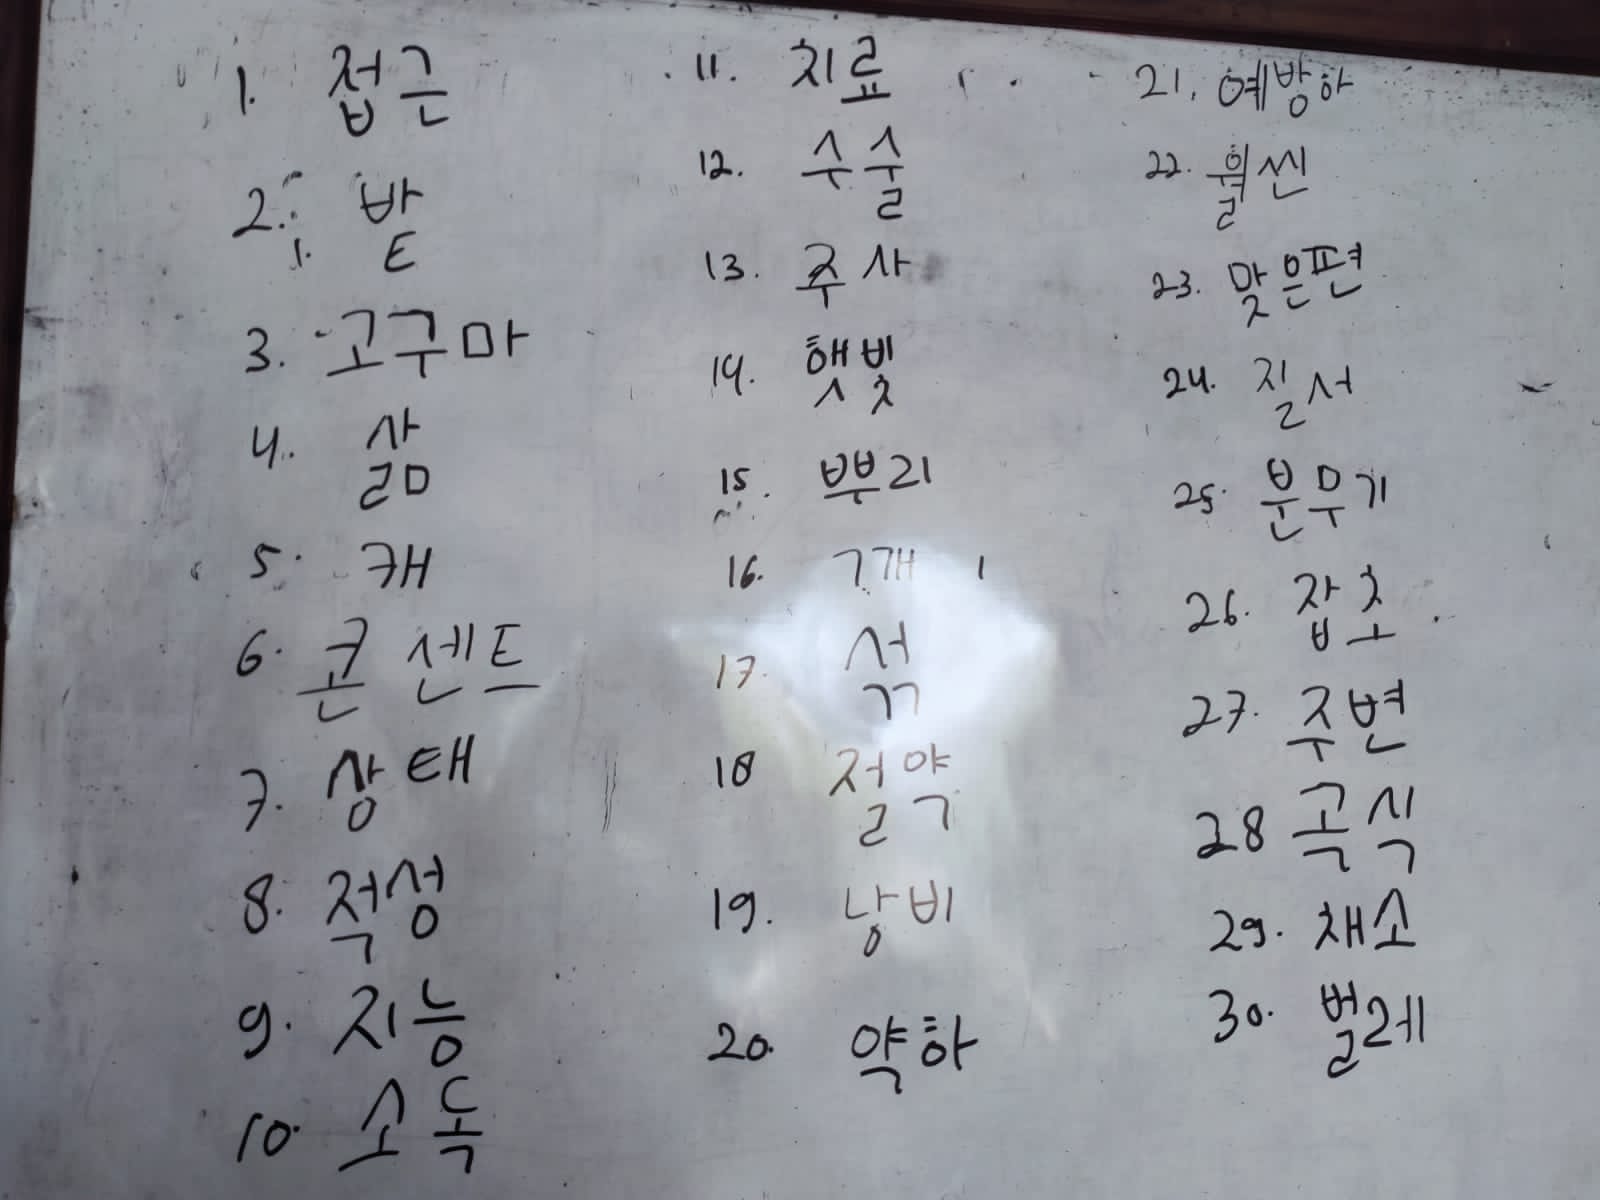 1. 접근
2. 밭
3. 고구마
4. 삶
5. 캐
6. 콘센트
7. 상태
8. 적성
9. 지능
10. 소독
11. 치료
12. 수술
13. 주사
14. 햇빛
15. 뿌리
16. ㄱ개
17. 섞
18 절약
19. 낭비
20. 약하
21. 예방하
22. 훨씬
23. 맞은편
24. 질서
25. 분무기
26. 잡초
27. 주변
28 곡식
29. 채소
30. 벌레